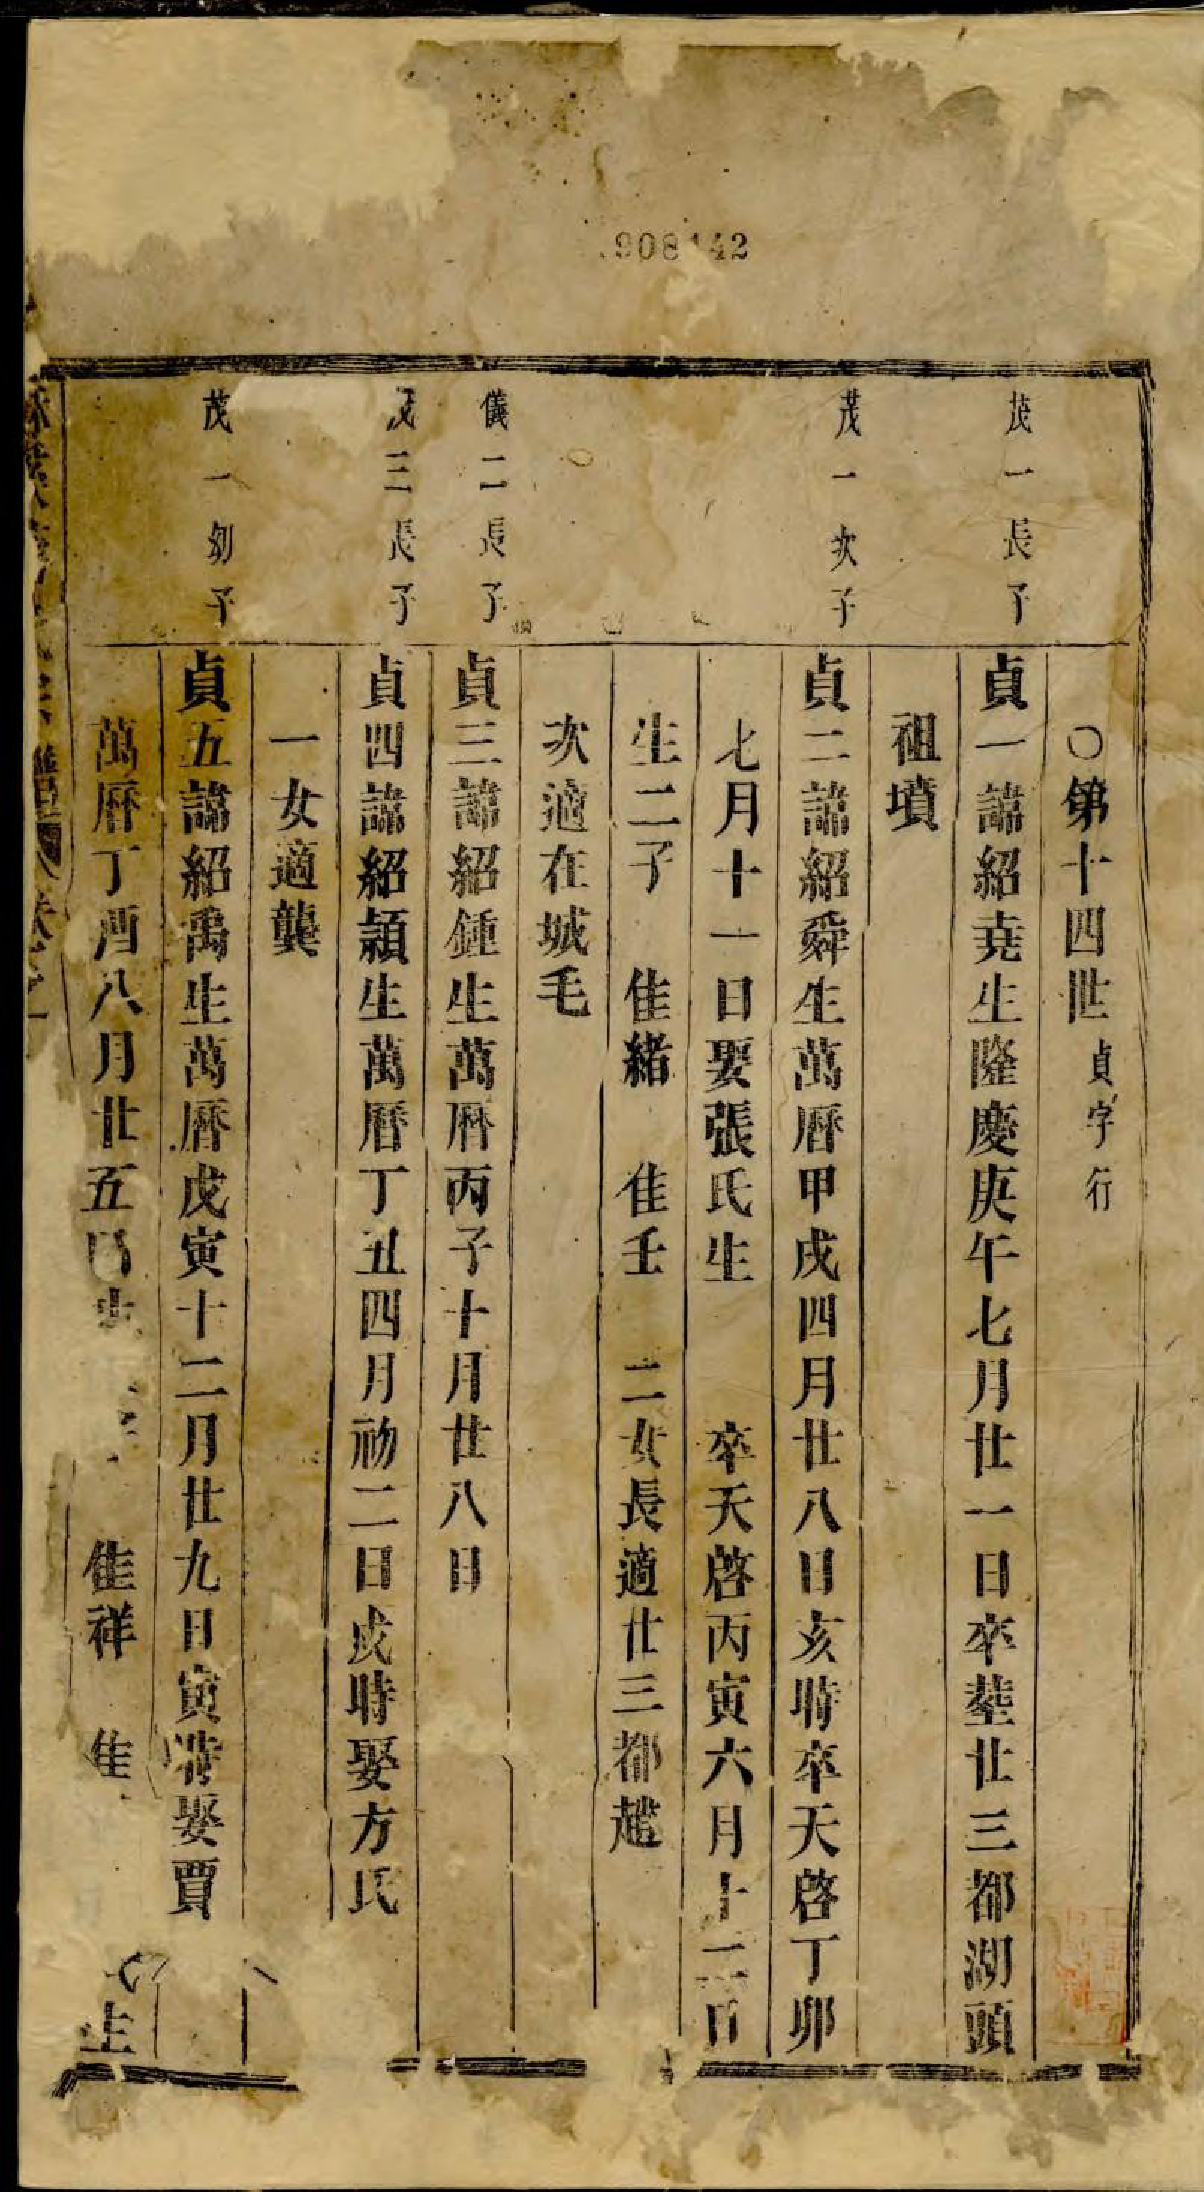 908142
○第十四世 貞字行
茂一長子
貞一諱紹堯生隆慶庚午七月廿一日卒塟廿三都湖頭
祖墳
茂一次子
貞二諱紹舜生萬曆甲戌四月廿八日亥時卒天啓丁卯
七月十一日娶張氏生 卒天啓丙寅六月十二日
生二子 隹緒 隹壬 二女長適廿三都趙
次適在城毛
儀二長子
貞三諱紹鍾生萬曆丙子十月廿八日
茂三長子
貞四諱紹潁生萬曆丁丑四月初二日戌時娶方氏
一女適龔
茂一幼子
貞五諱紹禹生萬曆戊寅十二月廿九日寅時娶賈
萬曆丁酉八月廿五日 隹祥 隹 生